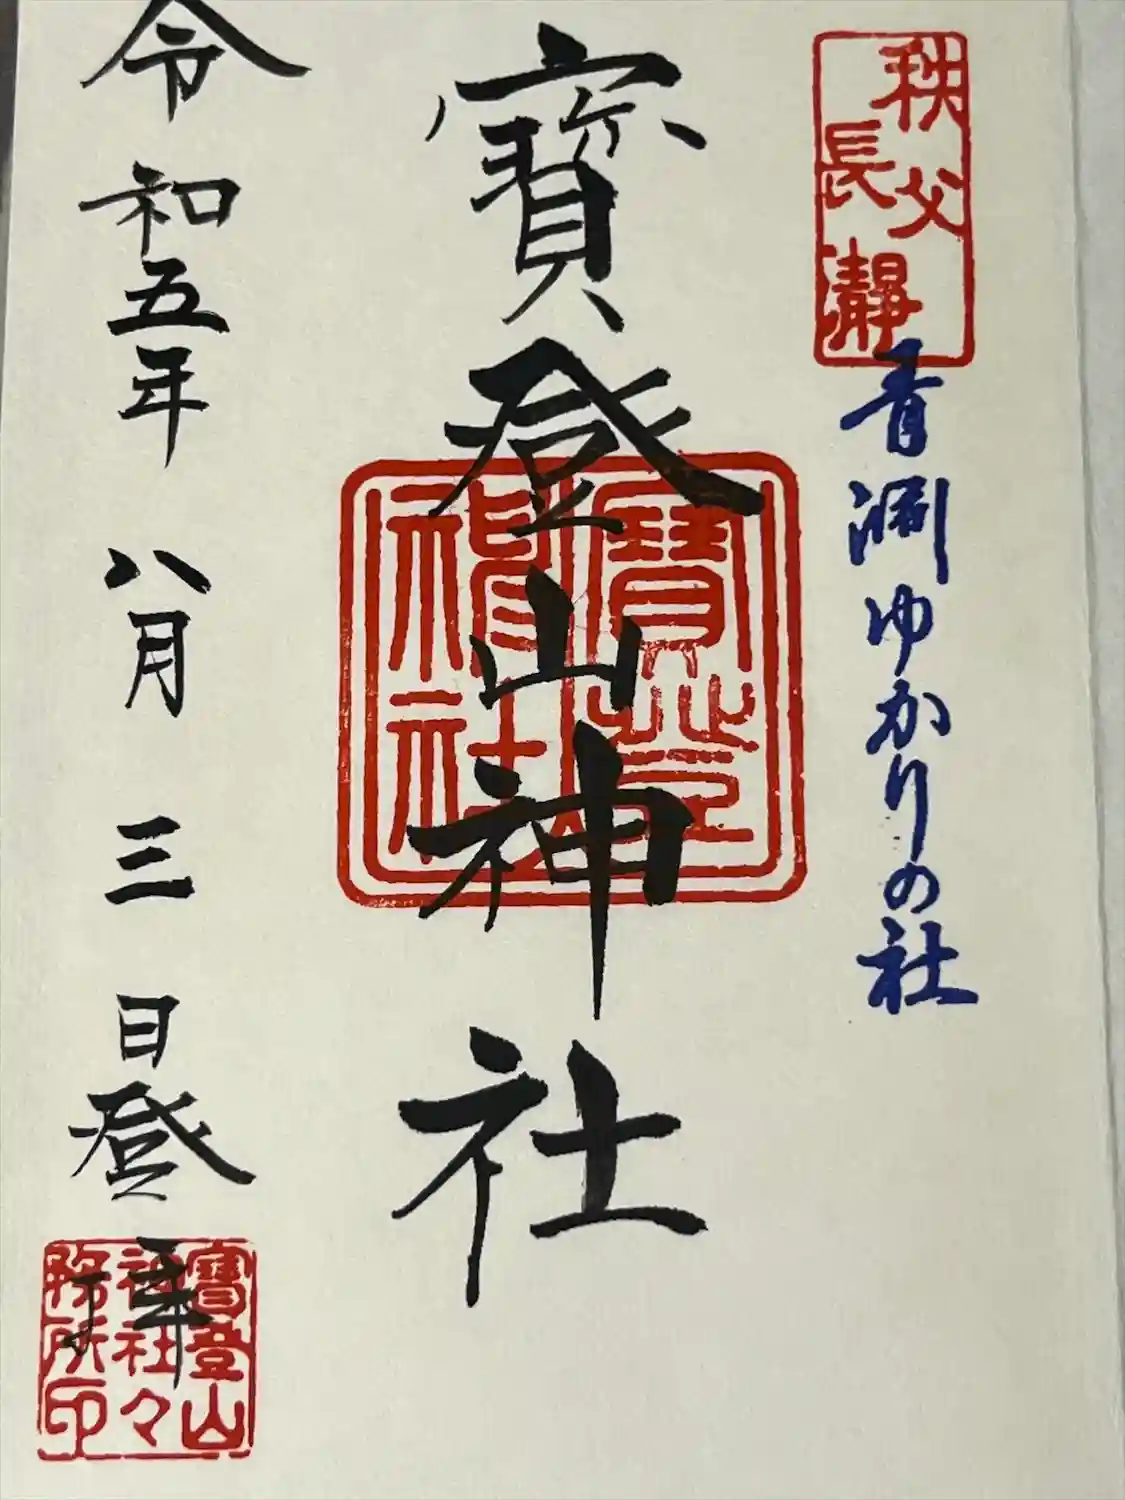 秩父
長瀞
青淵ゆかりの社
寳登山神社
寳登山
神社
令和五年 八月 三 日登拝
寳登山
神社々
務所印